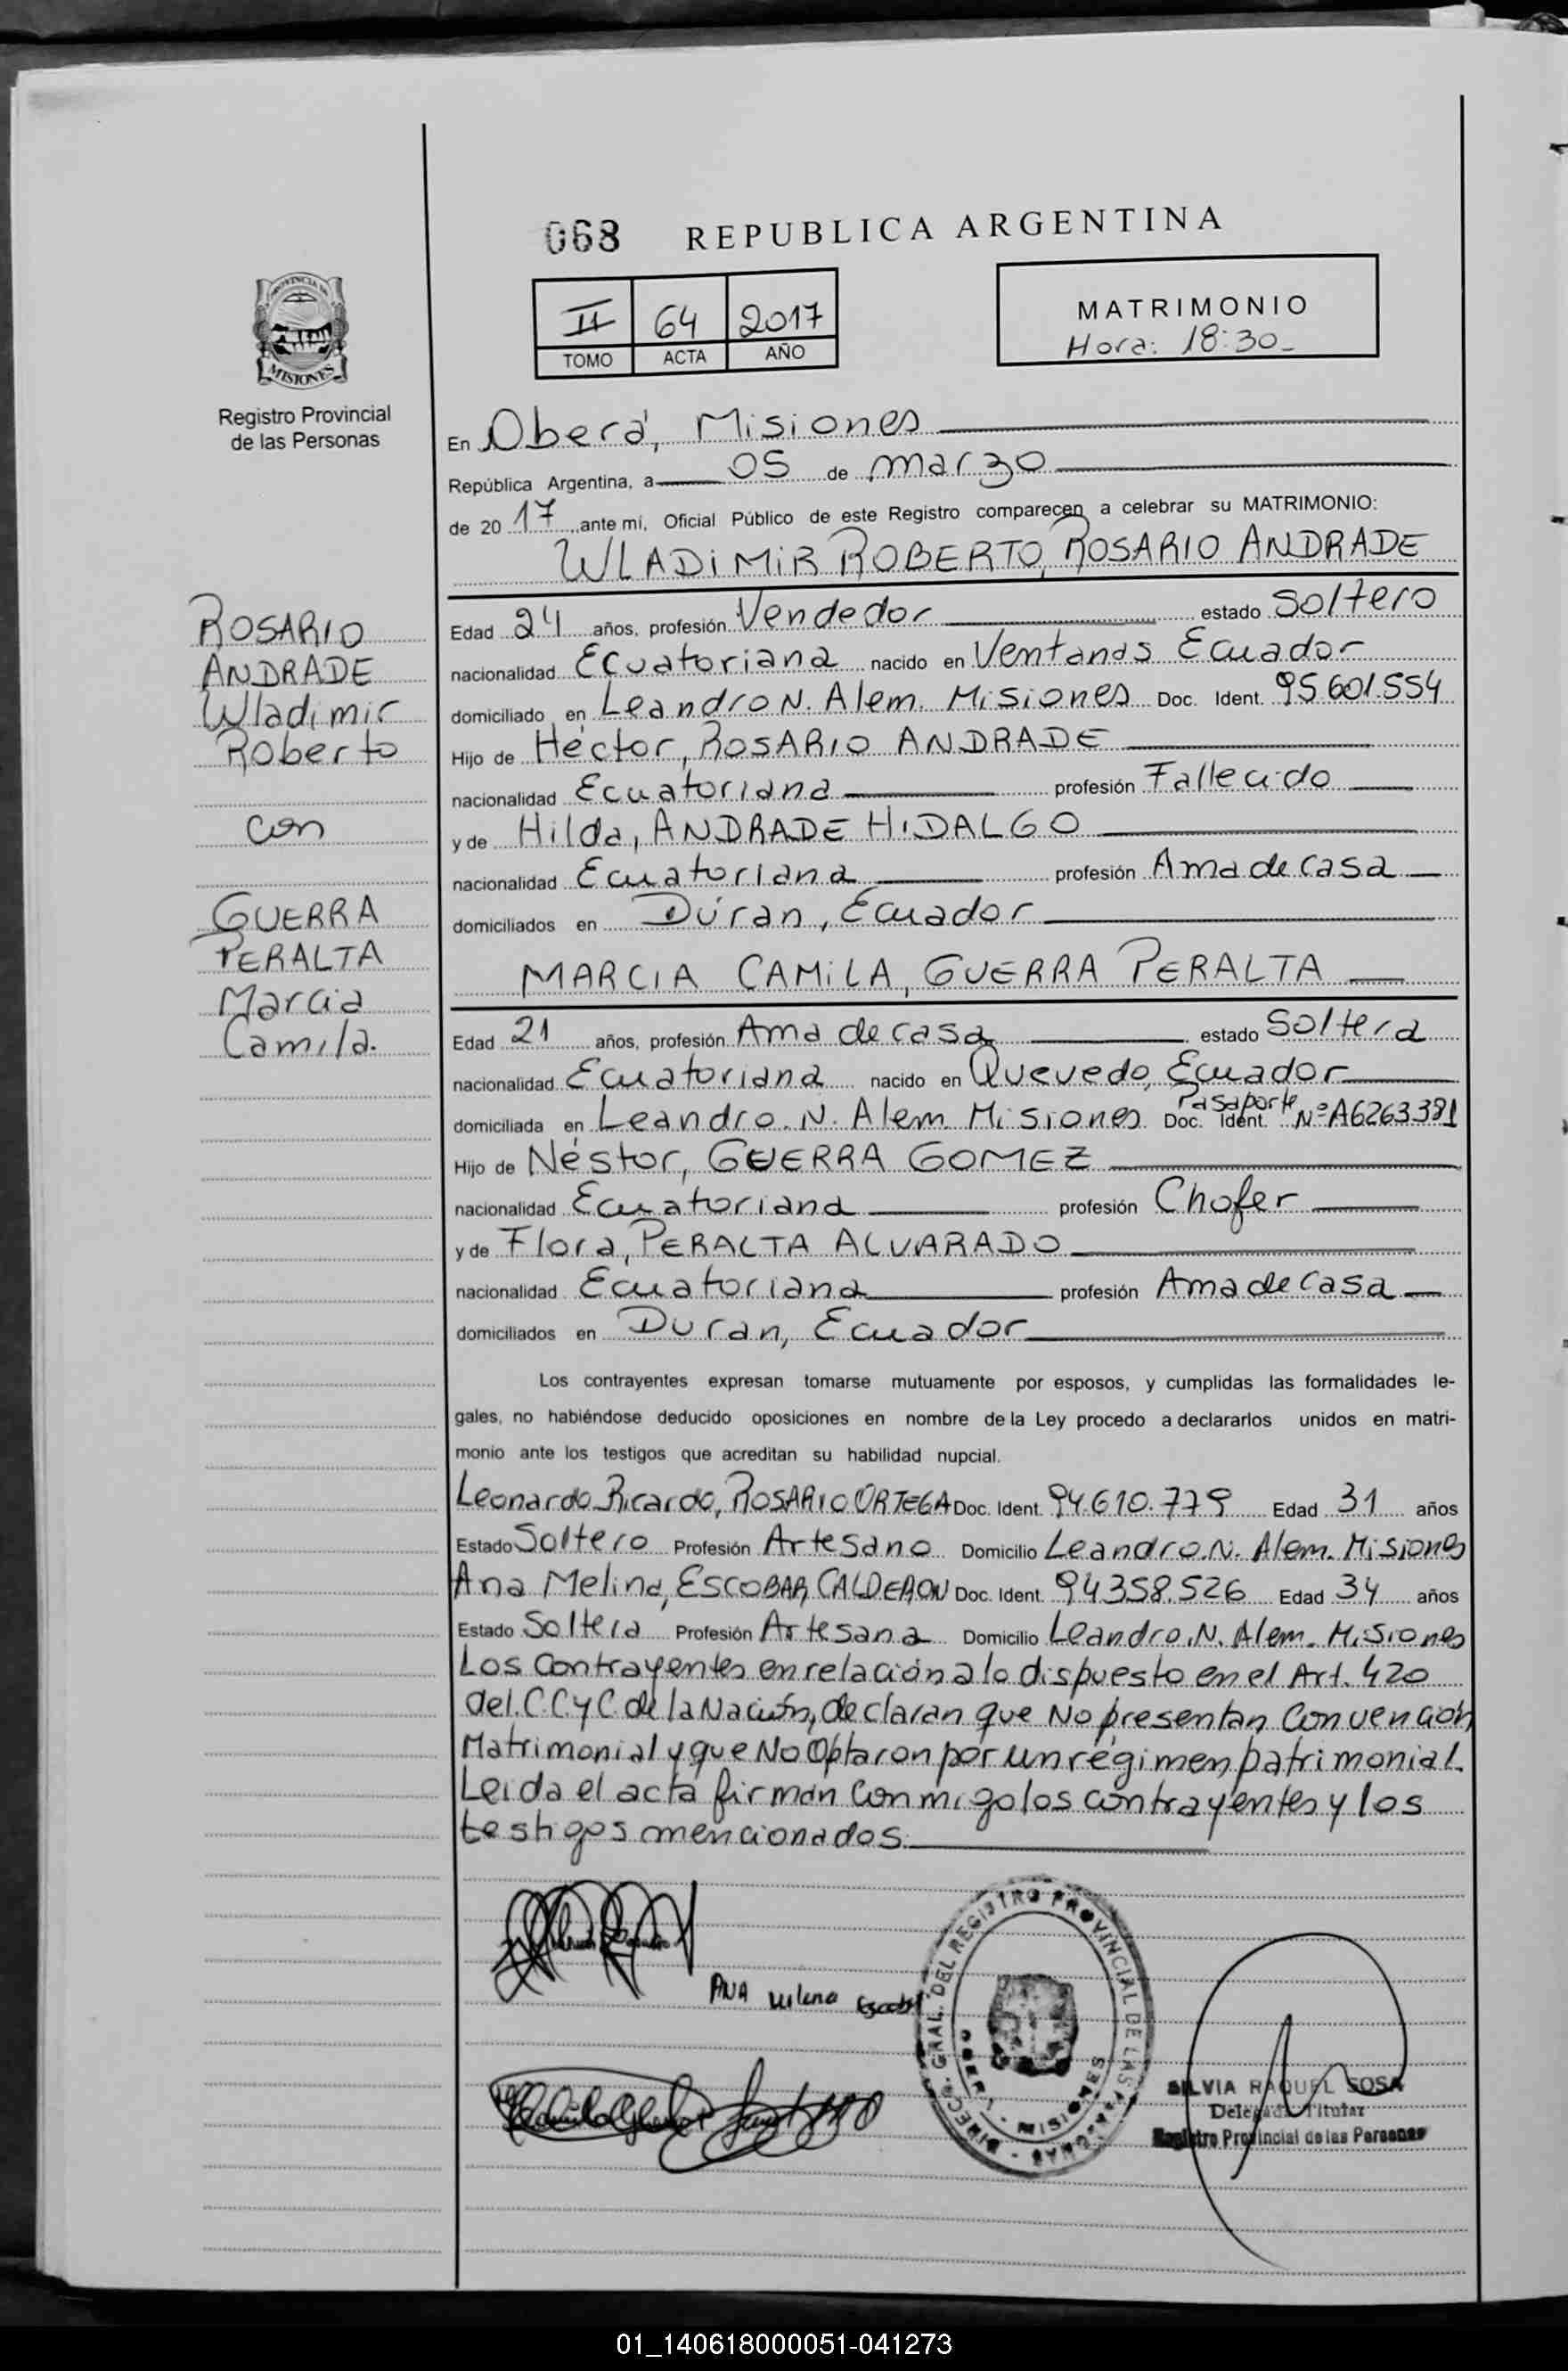 068 REPUBLICA ARGENTINA
II 64 2017
TOMO ACTA AÑO
MATRIMONIO
Hora: 18:30_
PROVINCIA DE
MISIONES
Registro Provincial
de las Personas
En Oberá, Misiones
República Argentina, a 05 de marzo
de 20 17 ante mí, Oficial Público de este Registro comparecen a celebrar su MATRIMONIO:
WLADIMIR ROBERTO, ROSARIO ANDRADE
Edad 24 años, profesión Vendedor estado Soltero
nacionalidad Ecuatoriana nacido en Ventanas Ecuador
domiciliado en Leandro N. Alem. Misiones Doc. Ident. 95.601.554
Hijo de Héctor, ROSARIO ANDRADE
nacionalidad Ecuatoriana profesión Fallecido
y de Hilda, ANDRADE HIDALGO
nacionalidad Ecuatoriana profesión Ama de casa
domiciliados en Dúran, Ecuador
MARCIA CAMILA, GUERRA PERALTA
Edad 21 años, profesión Ama de casa estado Soltera
nacionalidad Ecuatoriana nacido en Quevedo, Ecuador
domiciliada en Leandro. N. Alem. Misiones Doc. Ident. Pasaporte Nº A6263381
Hijo de Néstor, GUERRA GOMEZ
nacionalidad Ecuatoriana profesión Chofer
y de Flora, PERALTA ALVARADO
nacionalidad Ecuatoriana profesión Ama de casa
domiciliados en Duran, Ecuador
ROSARIO
ANDRADE
Wladimir
Roberto
con
GUERRA
PERALTA
Marcia
Camila.
Los contrayentes expresan tomarse mutuamente por esposos, y cumplidas las formalidades le-
gales, no habiéndose deducido oposiciones en nombre de la Ley procedo a declararlos unidos en matri-
monio ante los testigos que acreditan su habilidad nupcial.
Leonardo Ricardo, ROSARIO ORTEGA Doc. Ident. 94.610.779 Edad 31 años
Estado Soltero Profesión Artesano Domicilio Leandro.N. Alem. Misiones
Ana Melina, ESCOBAR CALDERON Doc. Ident. 94.358.526 Edad 34 años
Estado Soltera Profesión Artesana Domicilio Leandro.N. Alem. Misiones
Los contrayentes en relación a lo dispuesto en el Art. 420
del C.C.y C. de la Nación, declaran que No presentan Convención
Matrimonial y que No Optaron por un régimen patrimonial.
Leida el acta firman Conmigo los contrayentes y los
testigos mencionados.
ANA Milena
DIRECC. GRAL. DEL REGISTRO PROVINCIAL DE LAS PERSONAS
OBERA - MISIONES
SILVIA RAQUEL SOSA
Delegada Titular
Registro Provincial de las Personas
01_140618000051-041273